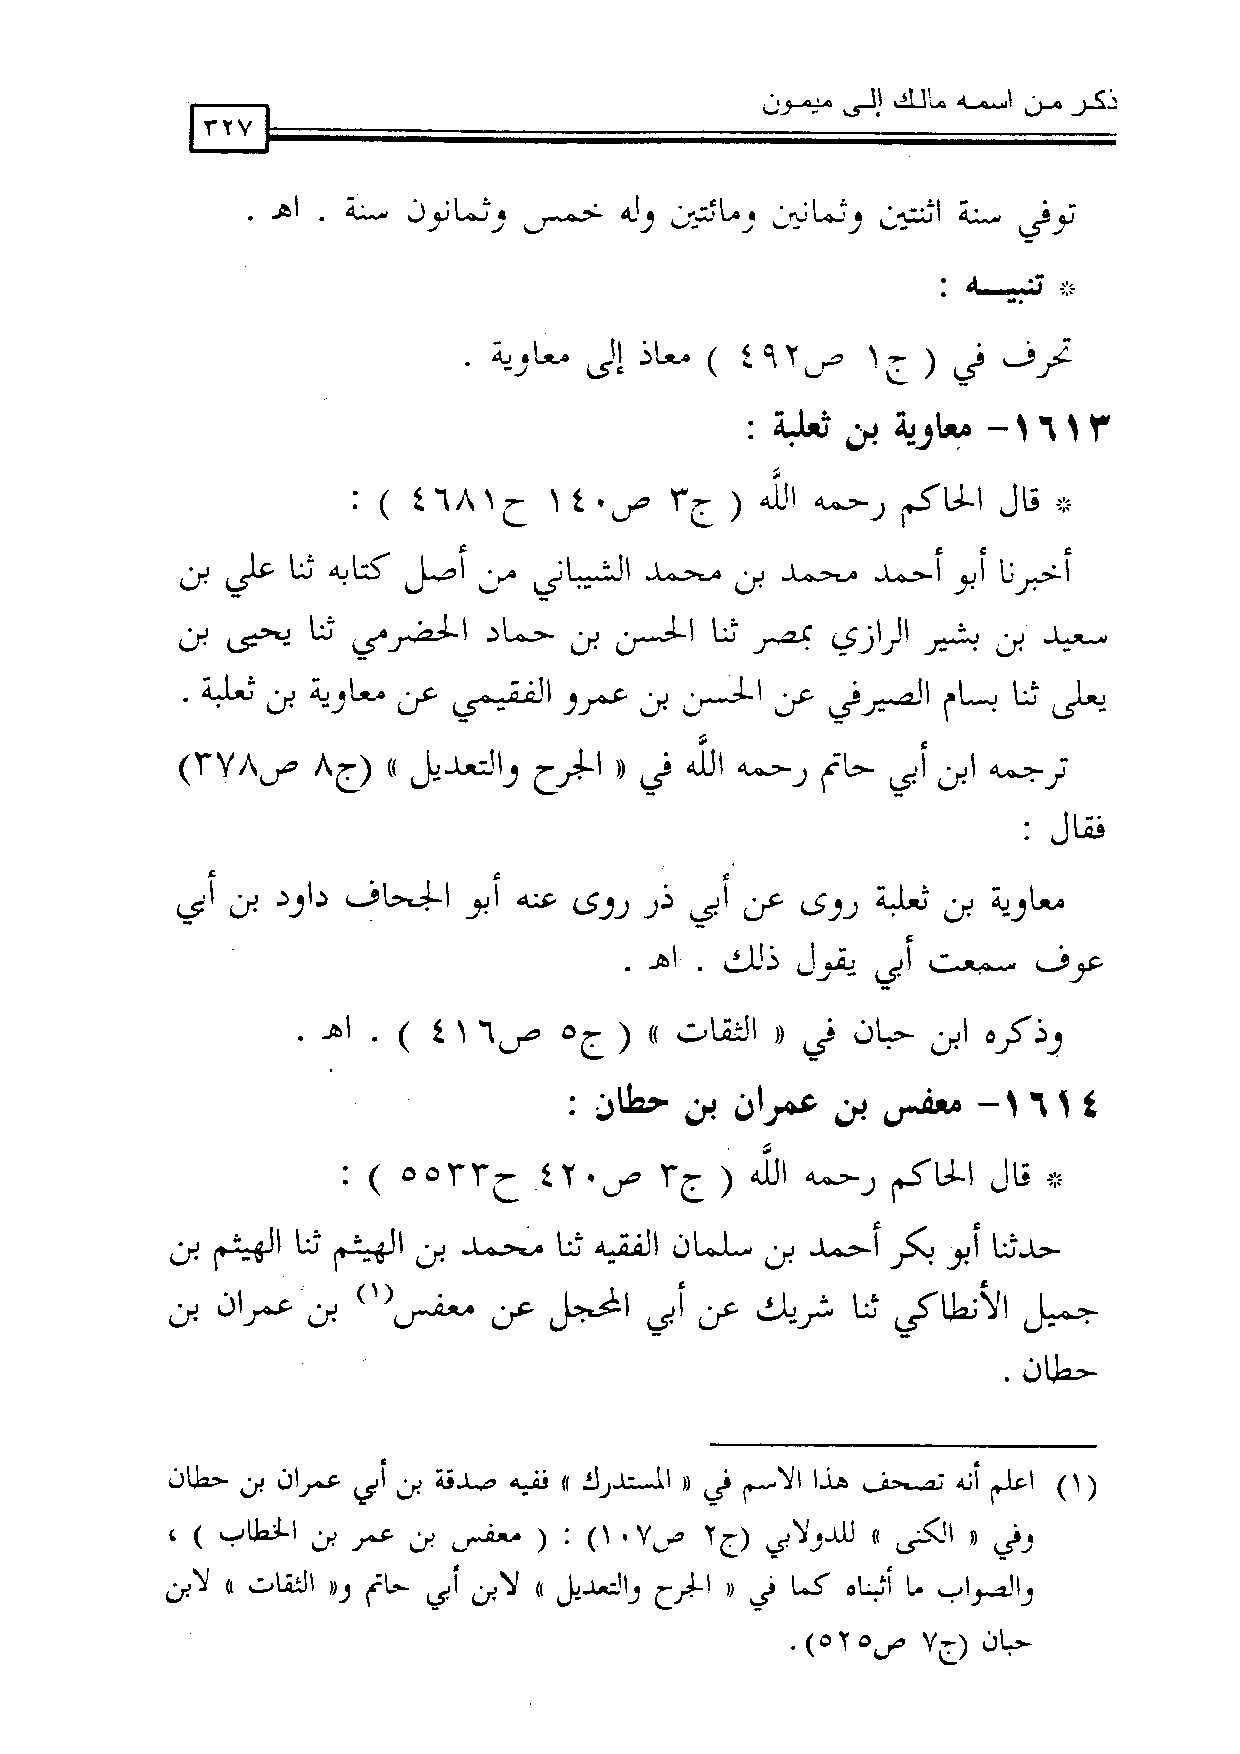 ذكر من اسمه مالك إلى ميمون
٣٢٧
توفي سنة اثنتين وثمانين ومائتين وله خمس وثمانون سنة . اهـ .
* تنبيـــه :
تحرف في ( ج١ ص٤٩٢ ) معاذ إلى معاوية .
١٦١٣- معاوية بن ثعلبة :
* قال الحاكم رحمه اللَّه ( ج٣ ص١٤٠ ح٤٦٨١ ) :
أخبرنا أبو أحمد محمد بن محمد الشيباني من أصل كتابه ثنا علي بن
سعيد بن بشير الرازي بمصر ثنا الحسن بن حماد الحضرمي ثنا يحيى بن
يعلى ثنا بسام الصيرفي عن الحسن بن عمرو الفقيمي عن معاوية بن ثعلبة .
ترجمه ابن أبي حاتم رحمه اللَّه في « الجرح والتعديل » (ج٨ ص٣٧٨)
فقال :
معاوية بن ثعلبة روى عن أبي ذر روى عنه أبو الجحاف داود بن أبي
عوف سمعت أبي يقول ذلك . اهـ .
وذكره ابن حبان في « الثقات » ( ج٥ ص٤١٦ ) . اهـ .
١٦١٤- معفس بن عمران بن حطان :
* قال الحاكم رحمه اللَّه ( ج٣ ص٤٢٠ ح٥٥٣٣ ) :
حدثنا أبو بكر أحمد بن سلمان الفقيه ثنا محمد بن الهيثم ثنا الهيثم بن
جميل الأنطاكي ثنا شريك عن أبي المحجل عن معفس(١) بن عمران بن
حطان .
(١) اعلم أنه تصحف هذا الاسم في « المستدرك » ففيه صدقة بن أبي عمران بن حطان
وفي « الكنى » للدولابي (ج٢ ص١٠٧) : ( معفس بن عمر بن الخطاب ) ،
والصواب ما أثبناه كما في « الجرح والتعديل » لابن أبي حاتم و« الثقات » لابن
حبان (ج٧ ص٥٢٥) .